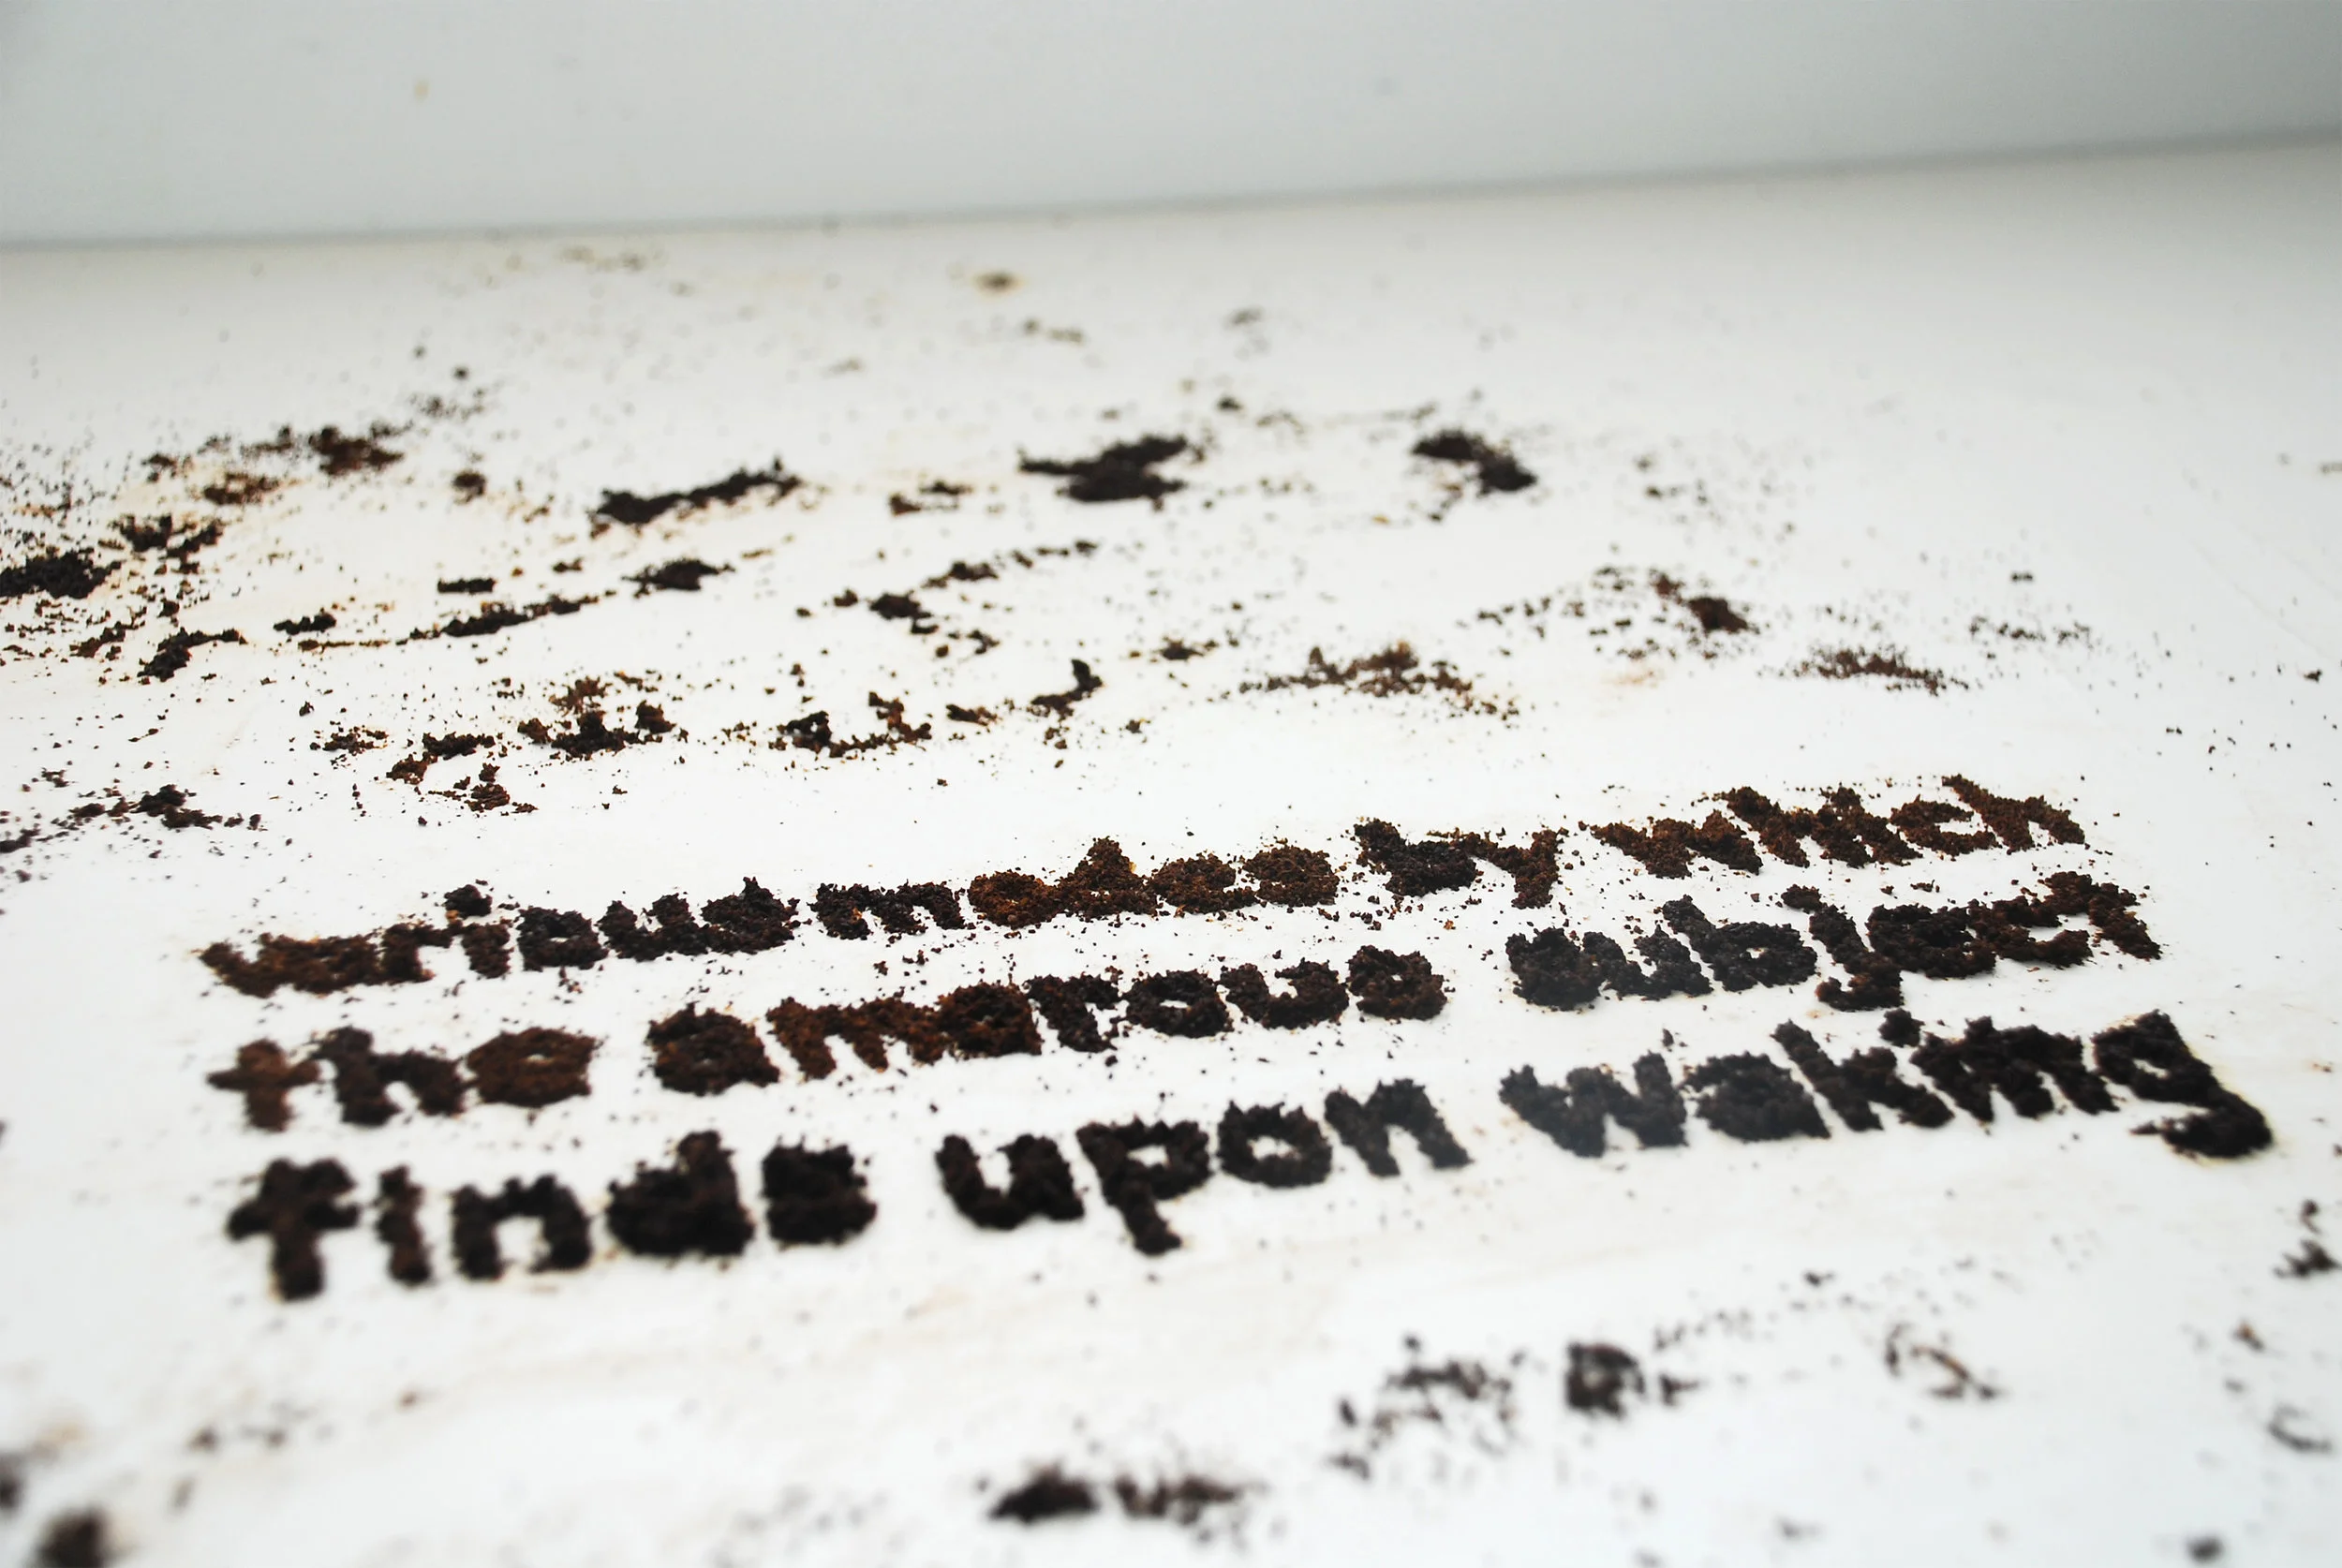 various modes by which
the amorous subject
finds upon waking